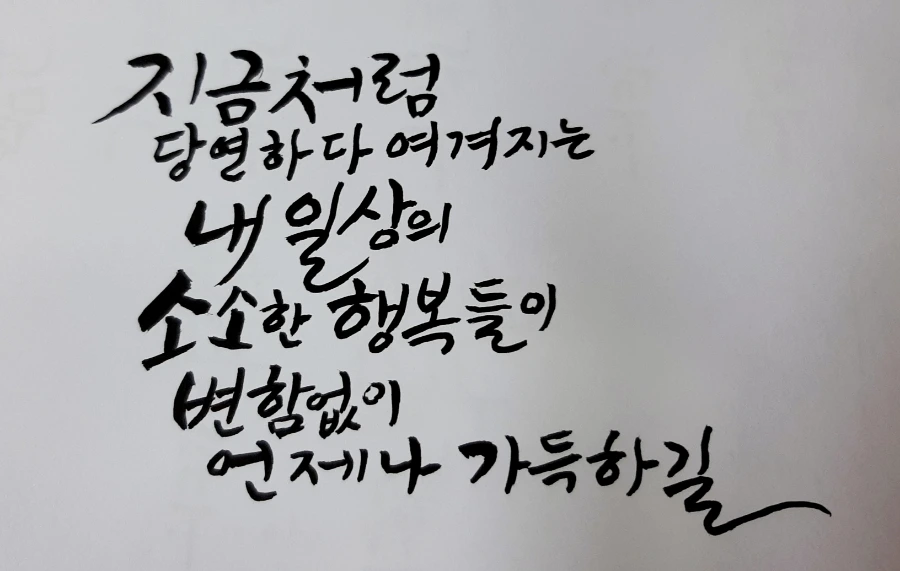 지금처럼
당연하다 여겨지는
내 일상의
소소한 행복들이
변함없이
언제나 가득하길